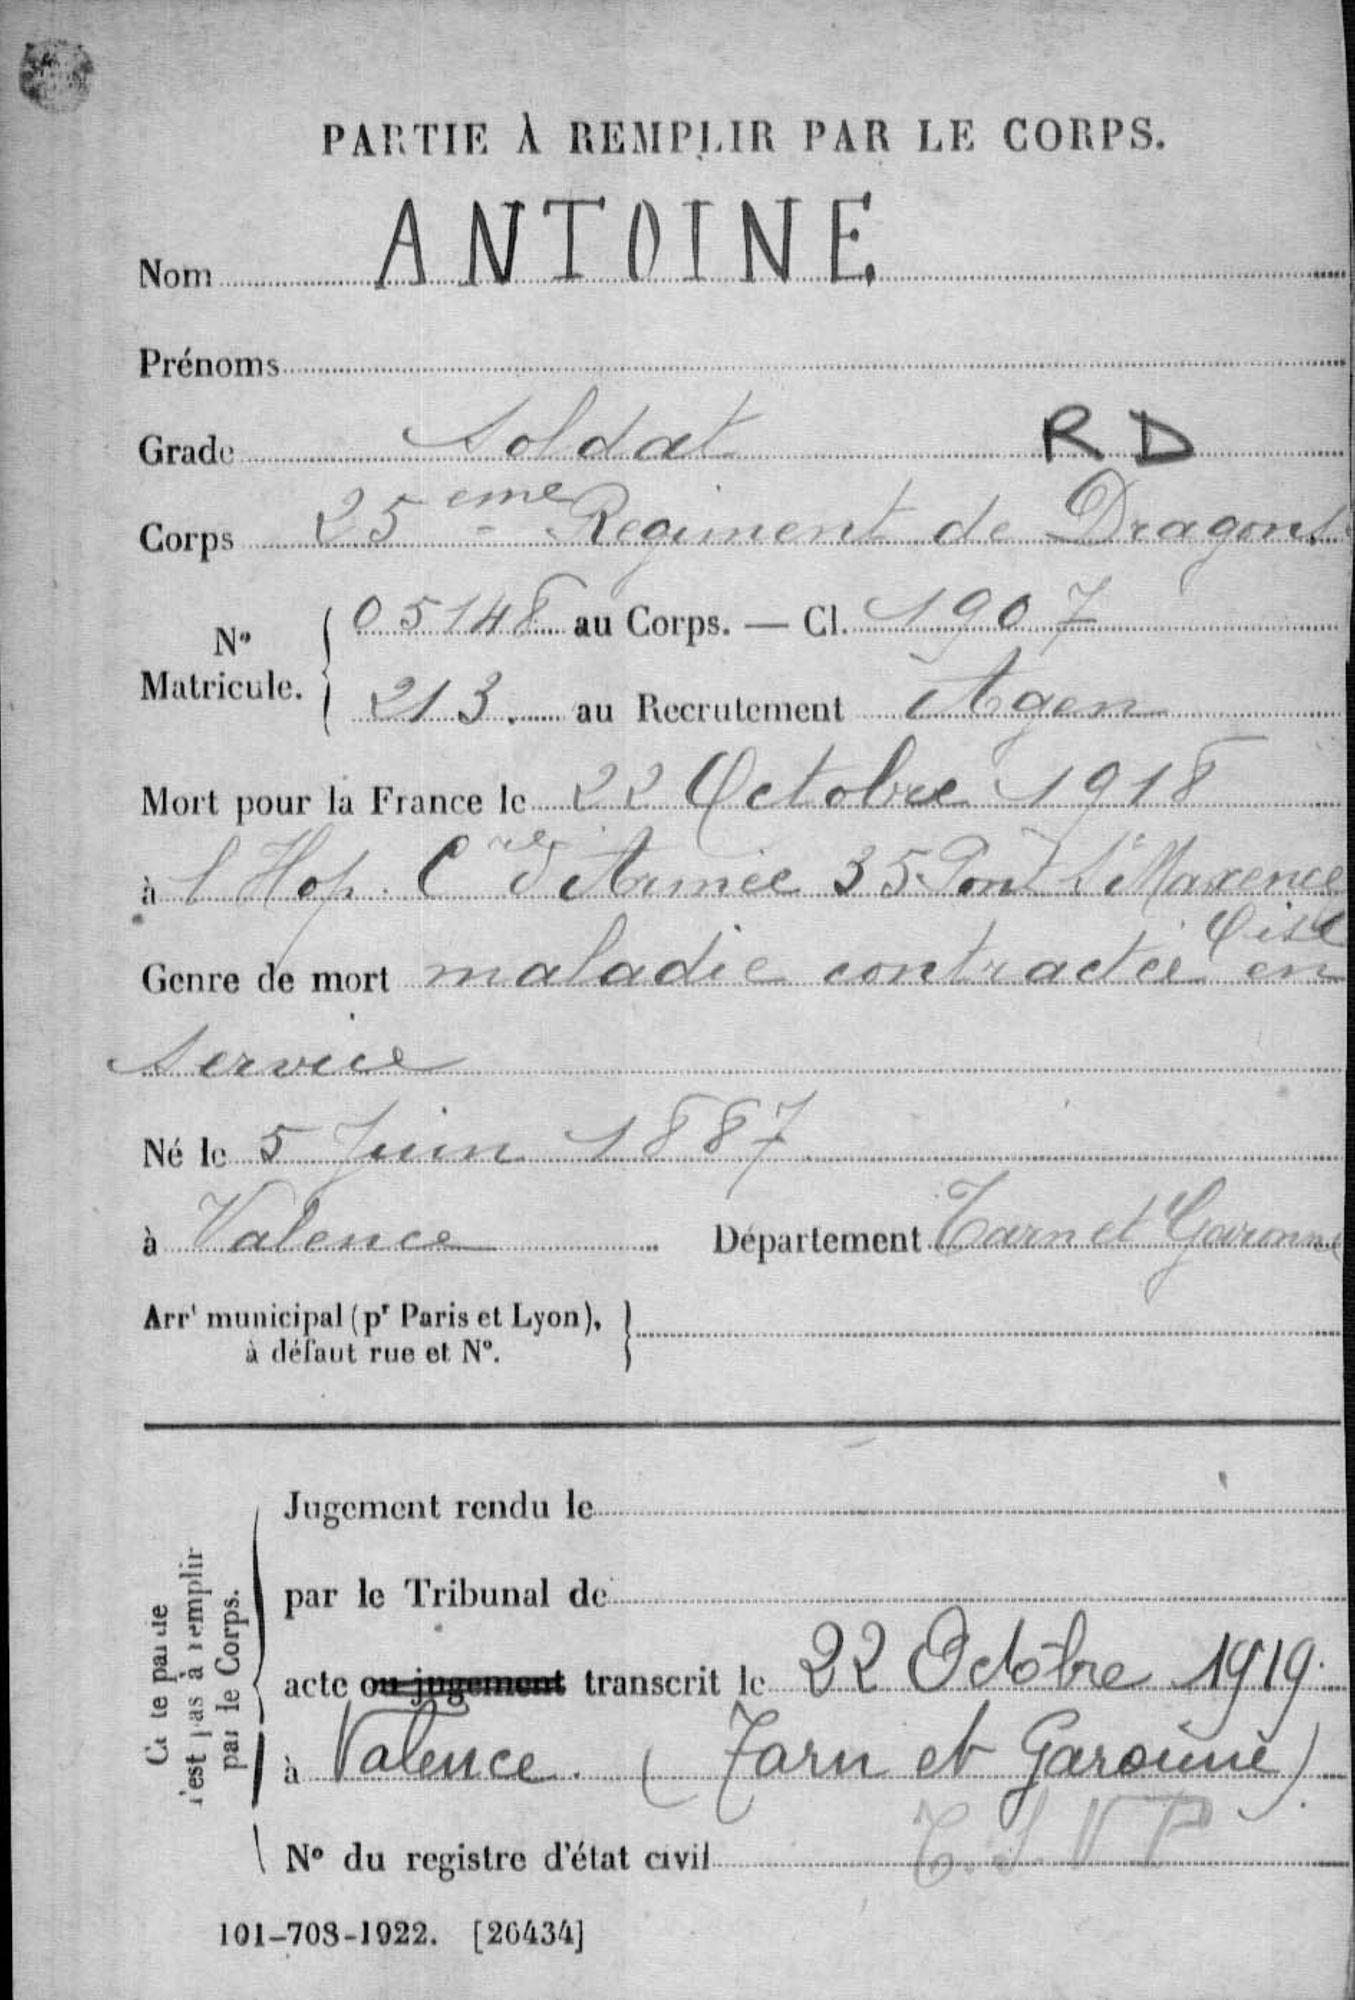 PARTIE À REMPLIR PAR LE CORPS.
Nom ANTOINE
Prénoms
Grade Soldat RD
Corps 25eme Regiment de Dragons
N° Matricule. 05148 au Corps. — Cl. 1907
213. au Recrutement Agen
Mort pour la France le 22 Octobre 1918
à l'Hop. Cre d'Armée 35 Pont St Maxence
Oise
Genre de mort maladie contractée en
service
Né le 5 Juin 1887
à Valence Département Tarn et Garonne
Arrt municipal (pr Paris et Lyon),
à défaut rue et N°.
Cette partie
n'est pas à remplir
par le Corps.
Jugement rendu le
par le Tribunal de
acte ou jugement transcrit le 22 Octobre 1919.
à Valence. (Tarn et Garonne)
N° du registre d'état civil T.S.V.P
101-708-1922. [26434]